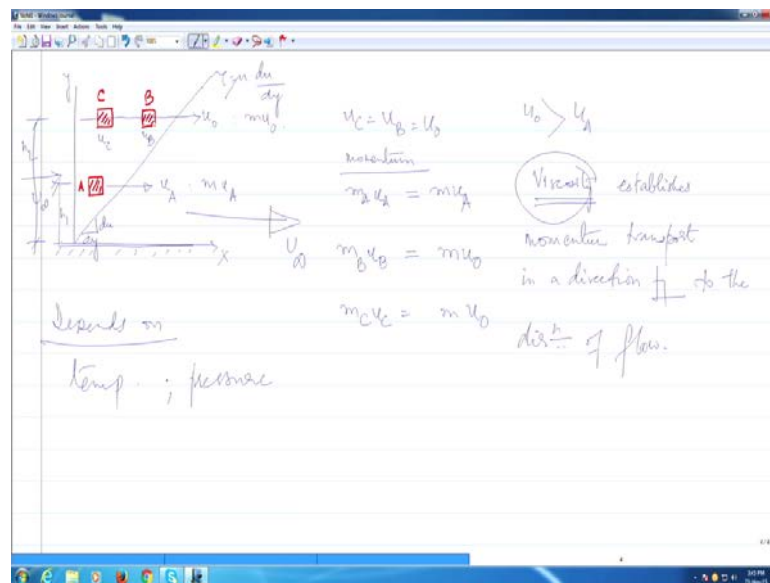 Note1 - Windows Journal
File Edit View Insert Actions Tools Help
y
C
B
τ = μ du/dy
u_0 . mu_0.
u_C
u_B
h_2
A
u_A . mu_A
h_1
∞
du
dy
x
U_∞
u_C = u_B = u_0
momentum
m_A u_A = mu_A
m_B u_B = mu_0
m_C u_C = mu_0
u_0 > u_A
Viscosity establishes
momentum transport
in a direction to the
dirⁿ of flow.
Depends on
temp. ; pressure
3:45 PM